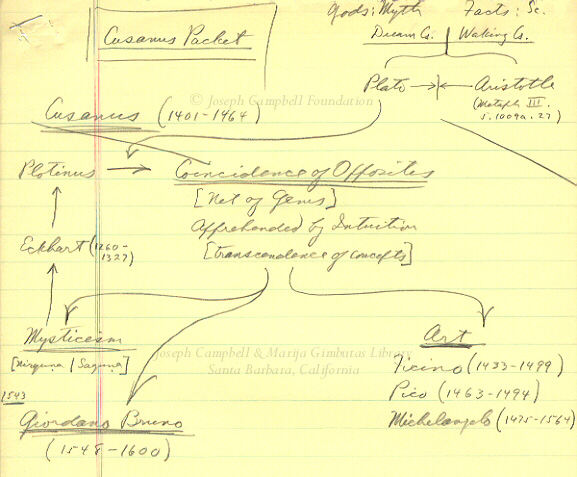 Gods: Myth Facts: Sc.
Cusanus Packet
Dream Co. Waking Co.
Plato Aristotle
© Joseph Campbell Foundation
(Metaph III.
5.1009a.27)
Cusanus (1401-1464)
Plotinus Coincidence of Opposites
[Net of Gems]
Apprehended by Intuition
Eckhart (1260-
1327)
[transcendence of concepts]
Mysticism Art
Joseph Campbell & Marija Gimbutas Library
Santa Barbara, California
[Nirguna / Saguna] Ficino (1433-1499)
1543 Pico (1463-1494)
Giordano Bruno Michelangelo (1475-1564)
(1548-1600)